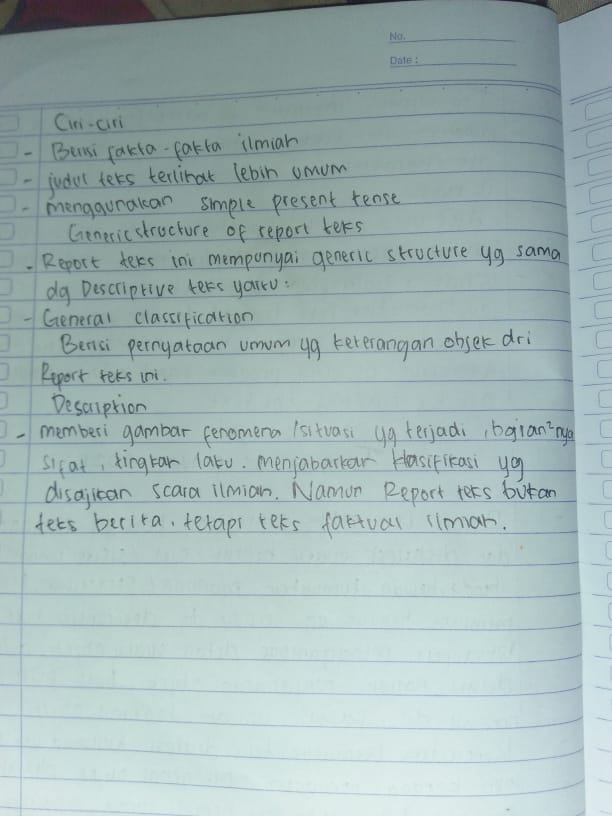 No.
Date :
Ciri-ciri
- Berisi fakta-fakta ilmiah
- judul teks terlihat lebih umum
- menggunakan simple present tense
Generic structure of report teks
- Report teks ini mempunyai generic structure yg sama
dg Descriptive teks yaitu:
- General classification
Berisi pernyataan umum yg keterangan objek dri
Report teks ini.
Description
- memberi gambar fenomena /situasi yg terjadi, bgian²nya
sifat, tingkah laku. menjabarkan klasifikasi yg
disajikan scara ilmiah. Namun Report teks bukan
teks berita, tetapi teks faktual ilmiah.